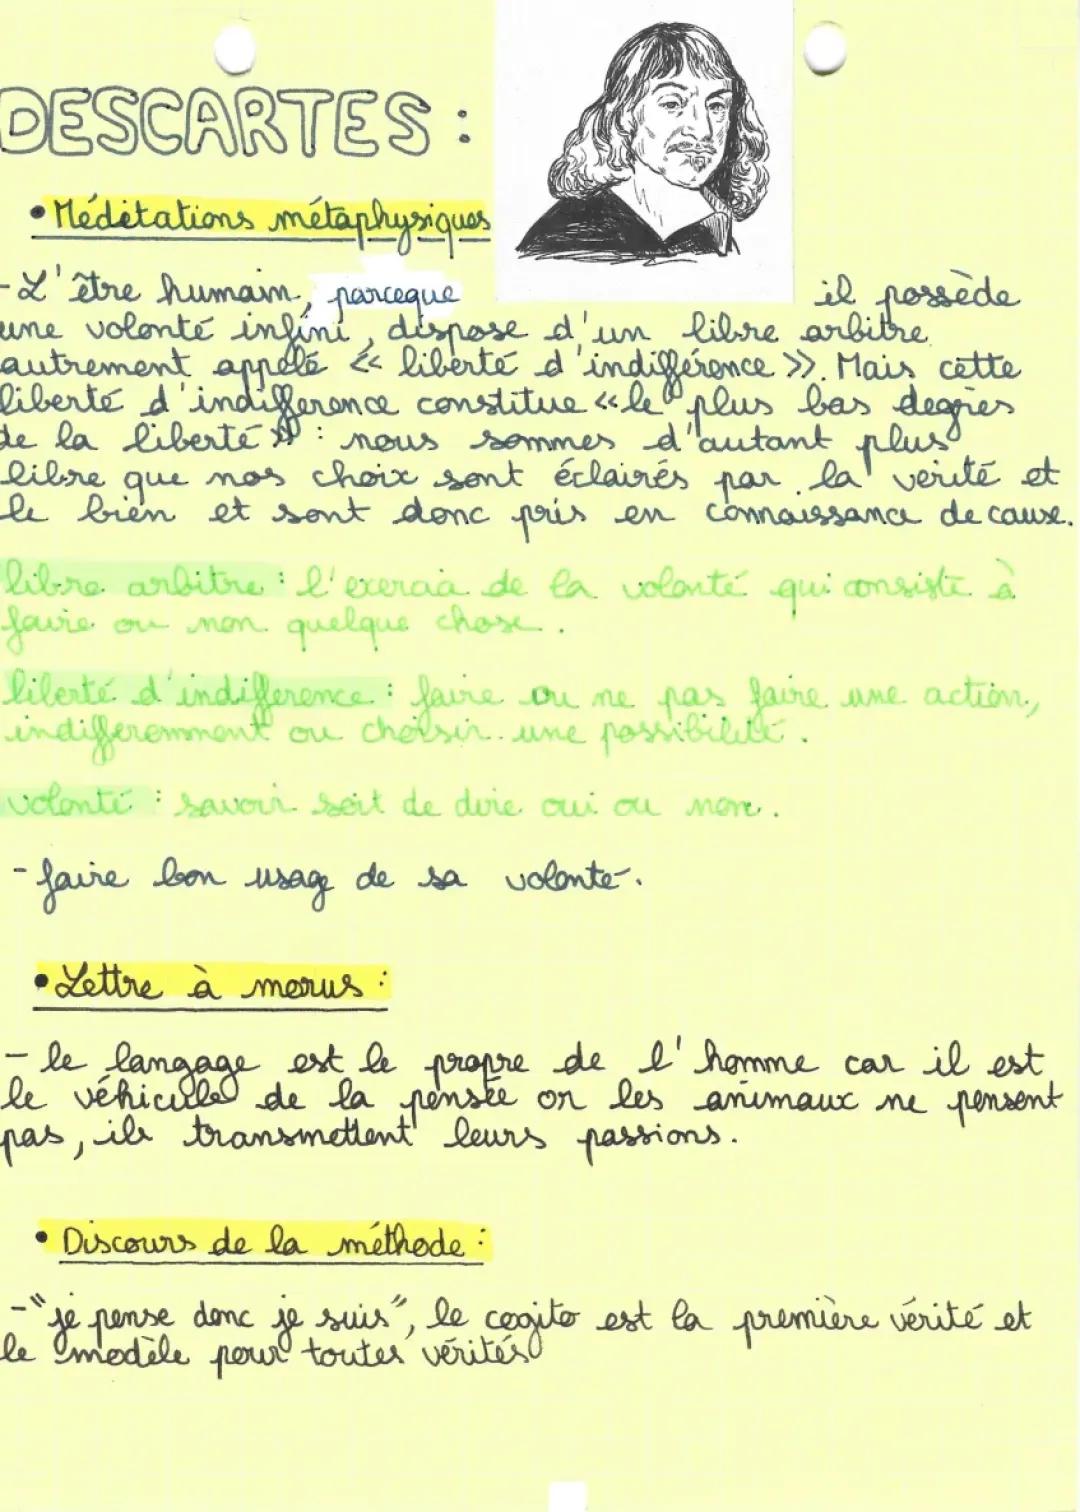 DESCARTES :
• Méditations métaphysiques
- L'être humain, parceque il possède
une volonté infini, dispose d'un libre arbitre
autrement appelé << liberté d'indifférence >>. Mais cette
liberté d'indifference constitue << le plus bas degrès
de la liberté >> : nous sommes d'autant plus
libre que nos choix sont éclairés par la vérité et
le bien et sont donc pris en connaissance de cause.
libre arbitre : l'exercia de la volonté qui consiste à
faire ou non quelque chose.
liberté d'indifference : faire ou ne pas faire une action,
indifferemment ou choisir une possibilité.
volonté : savoir soit de dire oui ou non.
- faire bon usage de sa volonté.
• Lettre à morus :
- le langage est le propre de l'homme car il est
le véhicule de la pensée or les animaux ne pensent
pas, ils transmettent leurs passions.
• Discours de la méthode :
- "je pense donc je suis", le cogito est la première vérité et
le modèle pour toutes vérités